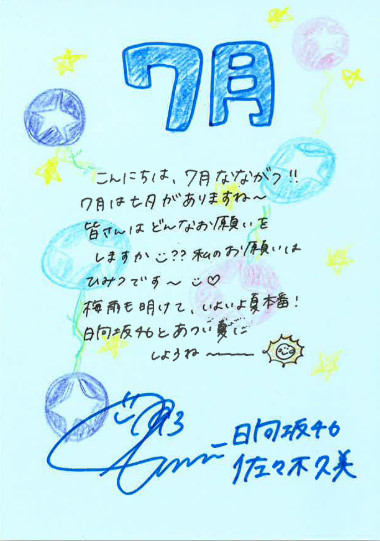 7月
こんにちは、7月なながつ!!
7月は七夕がありますね〜
皆さんはどんなお願いを
しますか??私のお願いは
ひみつです〜♡
梅雨も明けて、いよいよ夏本番!
日向坂46とあつい夏に
しようね〜
日向坂46
佐々木久美